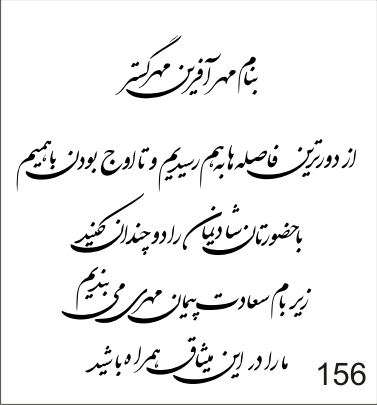 بنام مهر آفرین مهر گستر
از دورترین فاصله ها به هم رسیدیم و تا اوج بودن باهمیم
با حضورتان شادیمان را دو چندان کنید
زیر بام سعادت پیمان مهری می بندیم
ما را در این میثاق همراه باشید
156